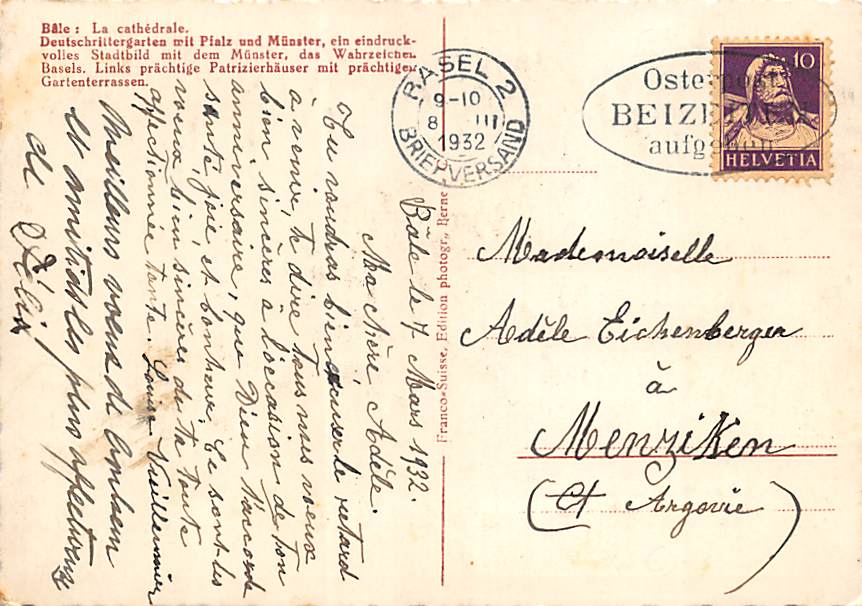 Bâle : La cathédrale.
Deutschrittergarten mit Pfalz und Münster, ein eindruck-
volles Stadtbild mit dem Münster, das Wahrzeichen
Basels. Links prächtige Patrizierhäuser mit prächtigen
Gartenterrassen.
BASEL 2
9-10
8 III
1932
BRIEFVERSAND
Osterpost
BEIZEITEN
aufgeben
10
HELVETIA
Franco-Suisse, Edition photogr., Berne
Bâle le 7 Mars 1932.
Ma chère Adèle.
Tu voudras bien excuser le retard
à venir, te dire tous nos voeux
bien sincères à l'occasion de ton
anniversaire, que Dieu t'accorde
santé, joie, et bonheur, ce sont les
voeux bien sincères de ta toute
affectionnée tante. Louise Vuilleumier
Meilleurs voeux de
et amitiés les plus affectueuses
de
Mademoiselle
Adèle Eichenberger
à
Menziken
(Ct Argovie)